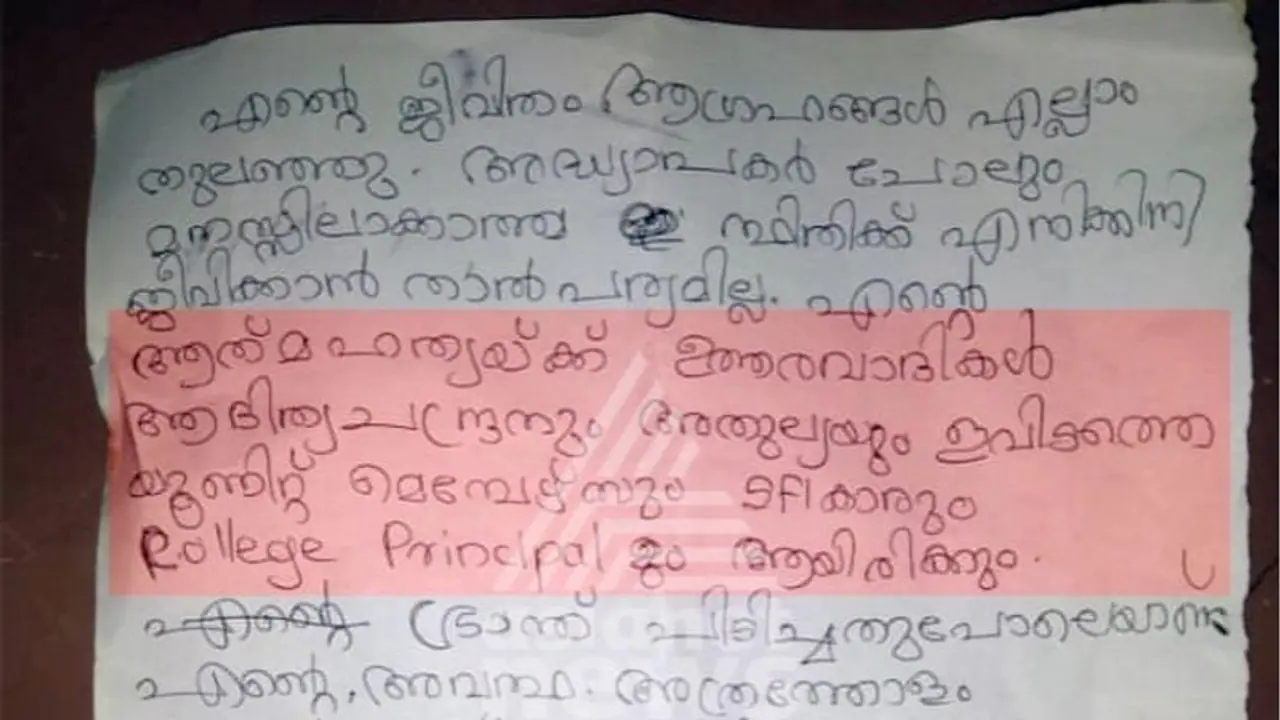 എന്റെ ജീവിതം ആഗ്രഹങ്ങൾ എല്ലാം
തുലഞ്ഞു. അദ്ധ്യാപകർ പോലും
മനസ്സിലാക്കാത്ത ഈ സ്ഥിതിക്ക് എനിക്കിനി
ജീവിക്കാൻ താൽപര്യമില്ല. എന്റെ
ആത്മഹത്യയ്ക്ക് ഉത്തരവാദികൾ
ആദിത്യചന്ദ്രനും അതുല്യയും ഇവിടത്തെ
യൂണിറ്റ് മെമ്പേഴ്സും SFIകാരും
College Principalളും ആയിരിക്കും.
എന്റെ ഭ്രാന്ത് പിടിച്ചതുപോലെയാണ്
എന്റെ അവസ്ഥ. അത്രത്തോളം
asianet
news